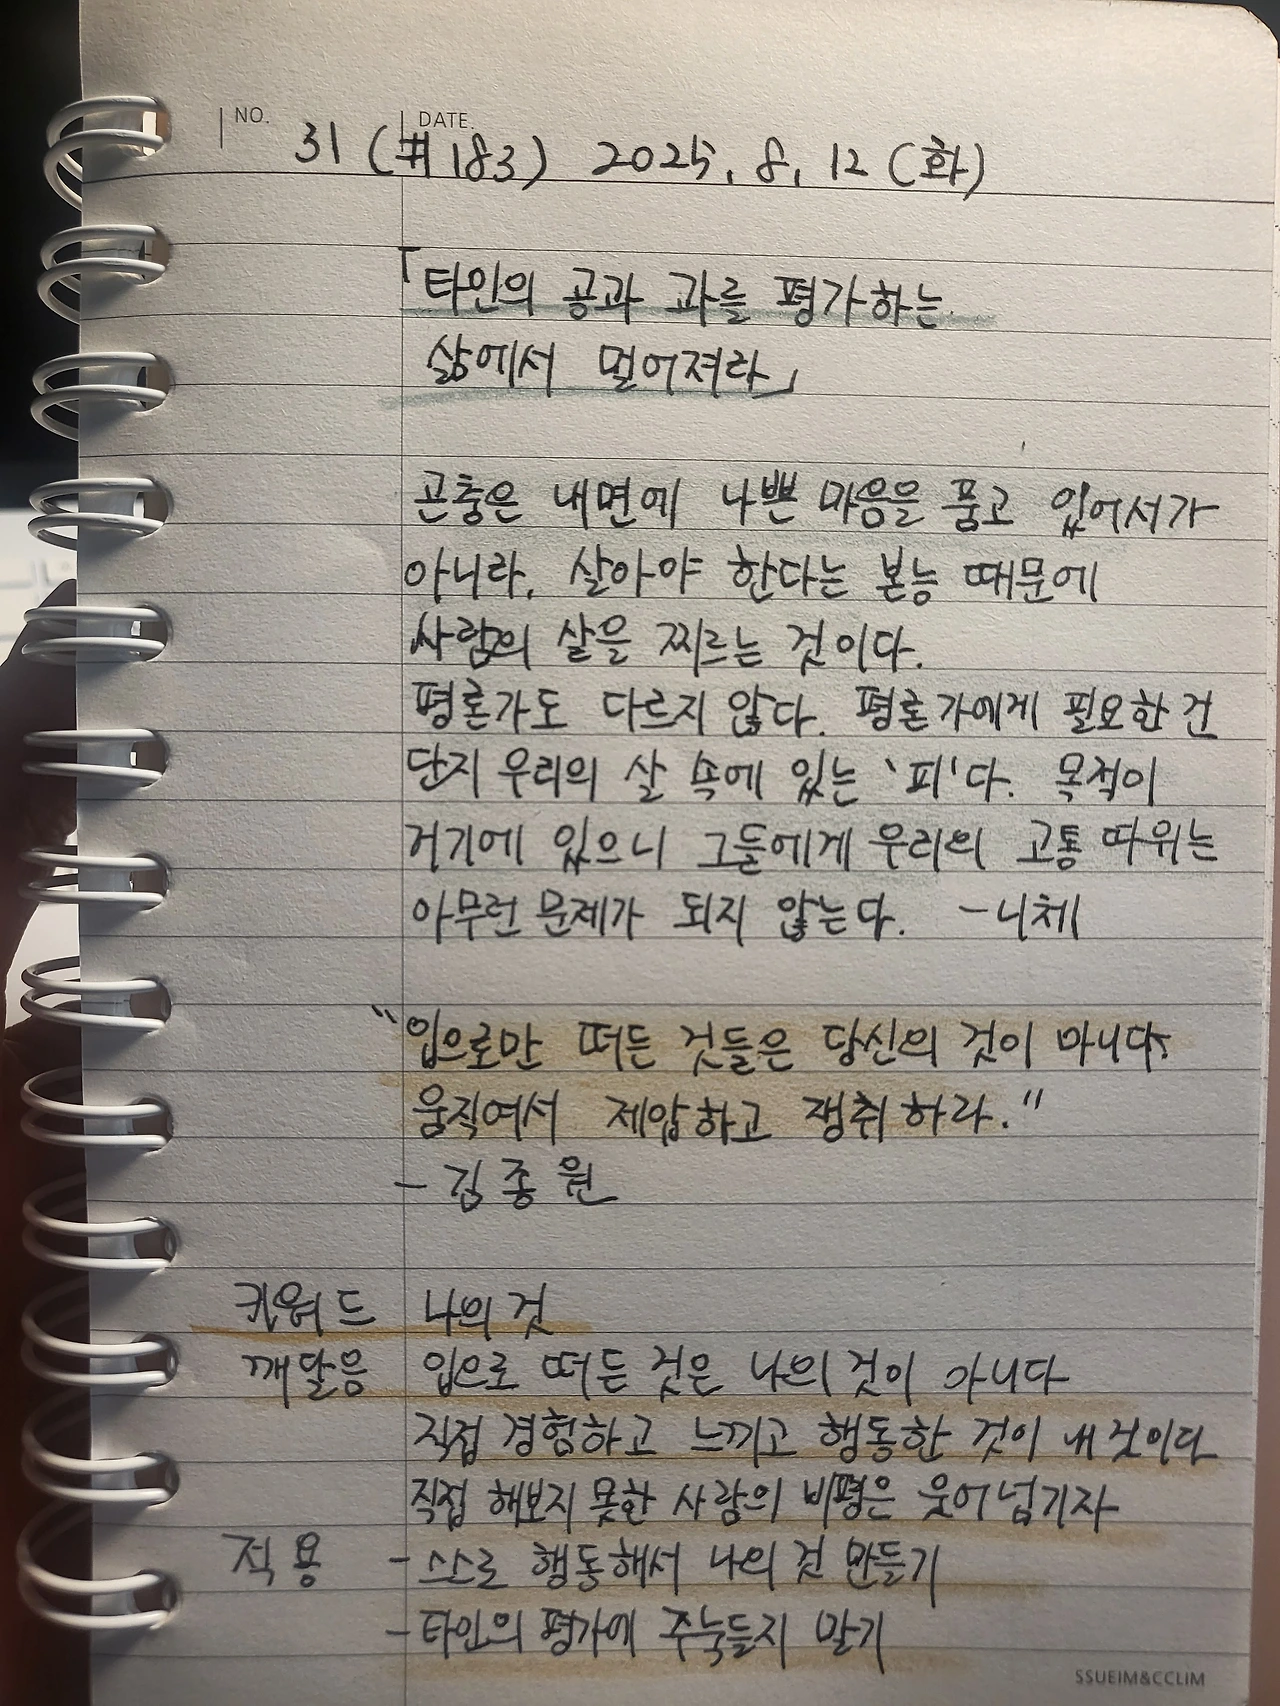 NO. DATE.
31 (#183) 2025. 8. 12 (화)
「타인의 공과 과를 평가하는
삶에서 멀어져라」
곤충은 내면에 나쁜 마음을 품고 있어서가
아니라, 살아야 한다는 본능 때문에
사람의 살을 찌르는 것이다.
평론가도 다르지 않다. 평론가에게 필요한 건
단지 우리의 살 속에 있는 '피'다. 목적이
거기에 있으니 그들에게 우리의 고통 따위는
아무런 문제가 되지 않는다. -니체
"입으로만 떠든 것들은 당신의 것이 아니다.
움직여서 제압하고 쟁취하라."
- 김종원
키워드 나의 것
깨달음 입으로 떠든 것은 나의 것이 아니다
직접 경험하고 느끼고 행동한 것이 내 것이다
직접 해보지 못한 사람의 비평은 웃어넘기자
적용 - 스스로 행동해서 나의 것 만들기
- 타인의 평가에 주눅들지 말기
SSUEIM&CCLIM